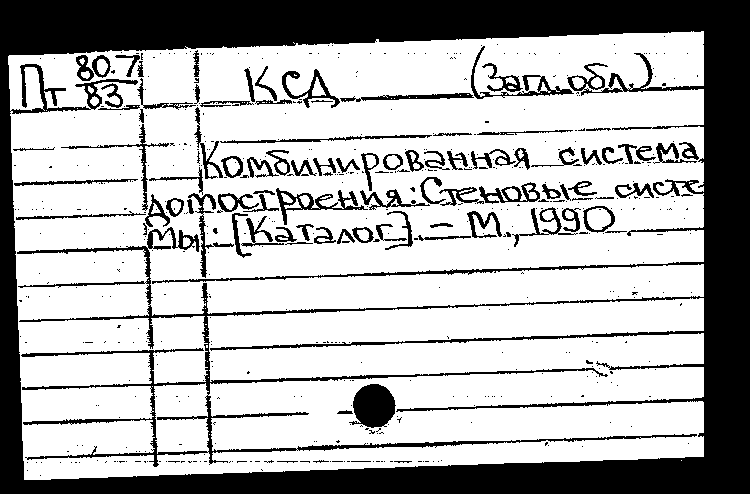 Пт 80.7/83 КСД (Загл. обл.).
Комбинированная система
домостроения: Стеновые систе
мы: [Каталог]. – М., 1990